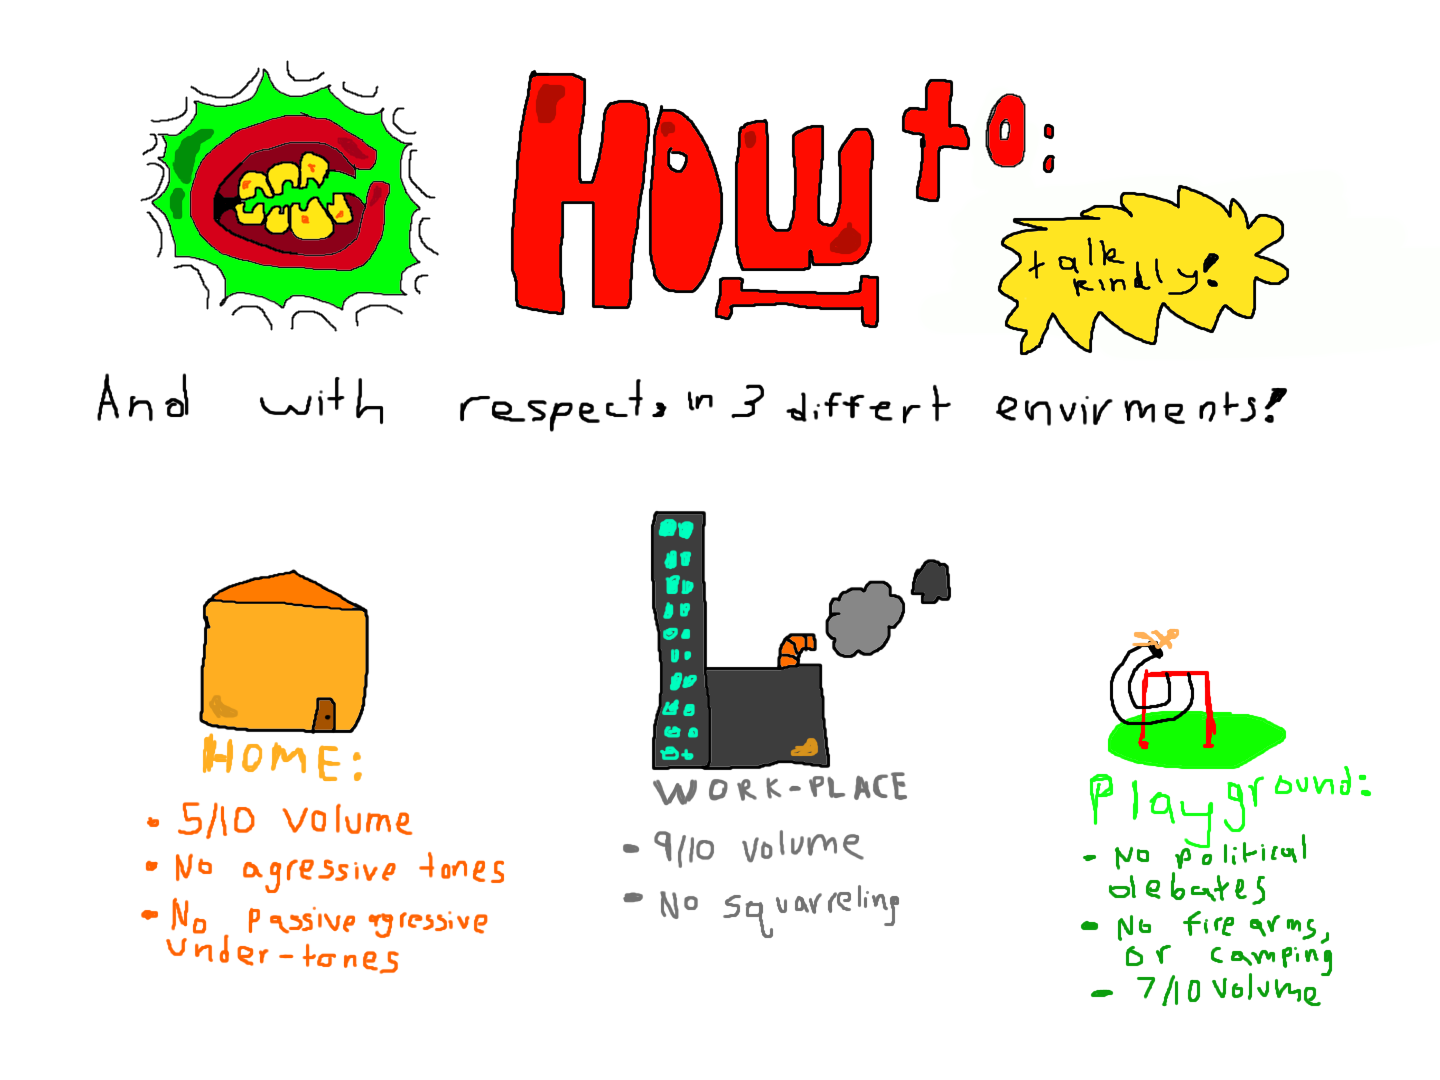 HOW to:
talk
kindly!
And with respect, in 3 differt envirments!
HOME:
• 5/10 volume
• No agressive tones
• No passive agressive
under-tones
WORK-PLACE
- 9/10 volume
- No squarreling
Playground:
- No political
debates
- No fire arms,
or camping
- 7/10 volume